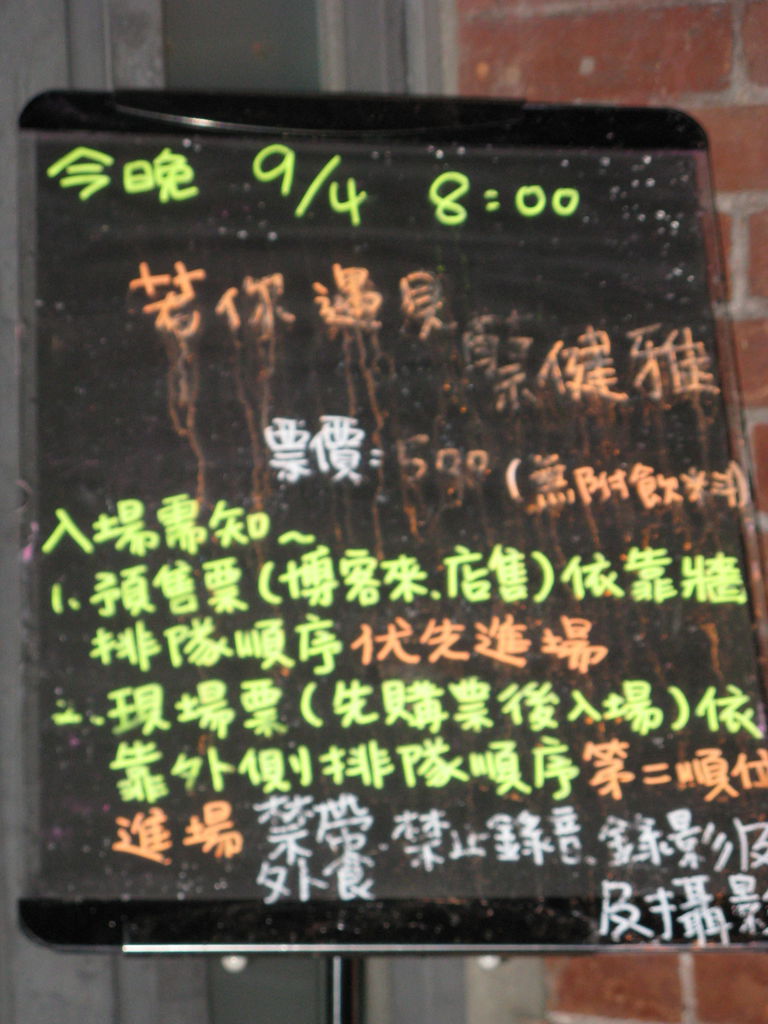 今晚 9/4 8:00
若你遇見
蔡健雅
票價:500 (無附飲料)
入場需知~
1. 預售票(博客來.店售)依靠牆
排隊順序伏先進場
二.現場票(先購票後入場)依
靠外側排隊順序第二順位
進場 禁帶外食.禁止錄音.錄影及
及攝影